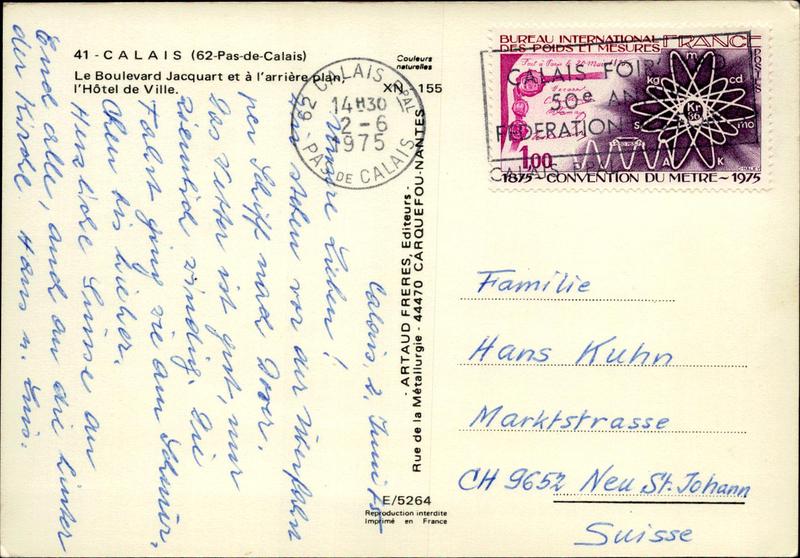 41 - CALAIS (62-Pas-de-Calais)
Le Boulevard Jacquart et à l'arrière plan,
l'Hôtel de Ville.
Couleurs
naturelles
XN 155
62 CALAIS Pal
14H30
2-6
1975
PAS DE CALAIS
BUREAU INTERNATIONAL
DES POIDS ET MESURES
FRANCE
POSTES
m
kg
cd
s
mol
A
K
Kr
36
1,00
1875 - CONVENTION DU METRE - 1975
CALAIS FOIR'
50e AN
FEDERATION
CALAIS
Calais, 2. Juni 75
Unsere Lieben!
Wir stehen vor der
per Schiff nach Dover.
Das Wetter ist gut, nur
ziemlich windig. Die
Fahrt ging wie am Schnür-
chen bis hieher.
Herzliche Grüsse an
Euch alle, und an die hinter
der Kirche. Hans u.
- ARTAUD FRERES, Editeurs -
Rue de la Métallurgie - 44470 CARQUEFOU-NANTES
E/5264
Reproduction interdite
Imprimé en France
Familie
Hans Kuhn
Marktstrasse
CH 9652 Neu St. Johann
Suisse